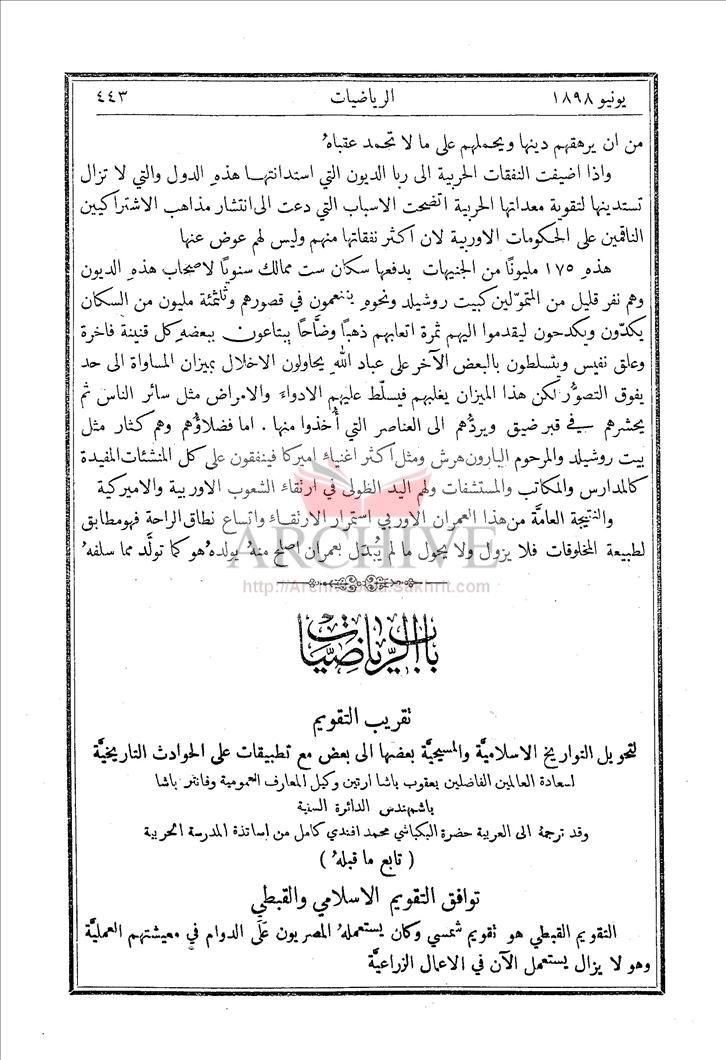 يونيو ١٨٩٨ الرياضيات ٤٤٣
من ان يرهقهم دينها ويحملهم على ما لا تحمد عقباهُ
واذا اضيفت النفقات الحربية الى ربا الديون التي استدانتها هذه الدول والتي لا تزال
تستدينها لتقوية معداتها الحربية اتضحت الاسباب التي دعت الى انتشار مذاهب الاشتراكيين
الناقمين على الحكومات الاوربية لان اكثر نفقاتها منهم وليس لهم عوض عنها
هذه ١٧٥ مليونًا من الجنيهات يدفعها سكان ست ممالك سنويًّا لاصحاب هذه الديون
وهم نفر قليل من المتموّلين كبيت روشيلد ونحوهِ يتنعمون في قصورهم وثلثمئة مليون من السكان
يكدّون ويكدحون ليقدموا اليهم ثمرة اتعابهم ذهبًا وضَّاحًا يبتاعون ببعضهِ كل قنينة فاخرة
وعلق نفيس ويتسلطون بالبعض الآخر على عباد الله يحاولون الاخلال بميزان المساواة الى حد
يفوق التصوُّر لكن هذا الميزان يغلبهم فيسلّط عليهم الادواء والامراض مثل سائر الناس ثم
يحشرهم في قبر ضيق ويردُّهم الى العناصر التي أُخذوا منها . اما فضلاؤهم وهم كثار مثل
بيت روشيلد والمرحوم البارون هرش ومثل اكثر اغنياء اميركا فينفقون على كل المنشئات المفيدة
كالمدارس والمكاتب والمستشفات ولهم اليد الطولى في ارتقاء الشعوب الاوربية والاميركية
والنتيجة العامَّة من هذا العمران الاوربي استمرار الارتقاء واتساع نطاق الراحة فهو مطابق
لطبيعة المخلوقات فلا يزول ولا يحول ما لم يُبدَل بعمران اصلح منهُ يولدهُ هو كما تولَّد مما سلفهُ
ARCHIVE
باب الرياضيات
تقريب التقويم
لتحويل التواريخ الاسلاميَّة والمسيحيَّة بعضها الى بعض مع تطبيقات على الحوادث التاريخيَّة
لسعادة العالمين الفاضلين يعقوب باشا ارتين وكيل المعارف العمومية وفانتر باشا
باشمهندس الدائرة السنية
وقد ترجمهُ الى العربية حضرة البكباشي محمد افندي كامل من اساتذة المدرسة الحربية
( تابع ما قبلهُ )
توافق التقويم الاسلامي والقبطي
التقويم القبطي هو تقويم شمسي وكان يستعملهُ المصريون على الدوام في معيشتهم العمليَّة
وهو لا يزال يستعمل الآن في الاعمال الزراعيَّة